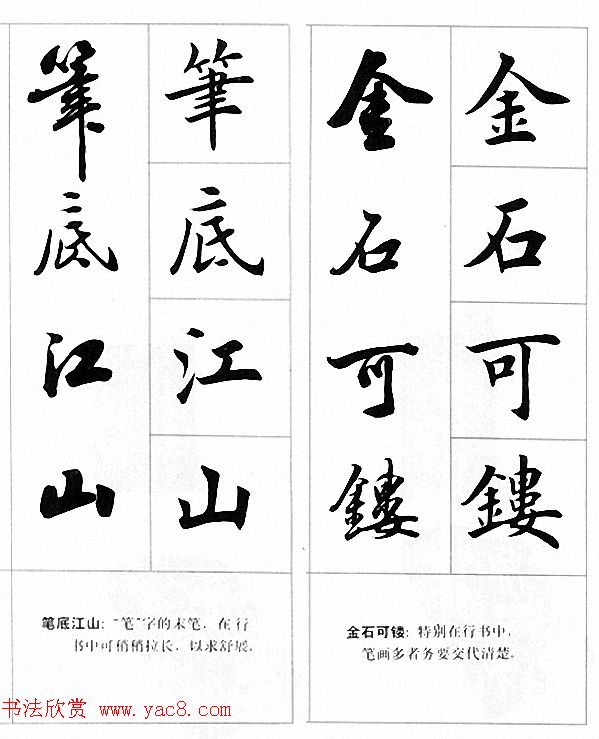 金石可鏤
金石可鏤
筆底江山
筆底江山
金石可镂：特别在行书中，
笔画多者务要交代清楚。
笔底江山：“笔”字的末笔，在行
书中可稍稍拉长，以求舒展。
书法欣赏 www.yac8.com